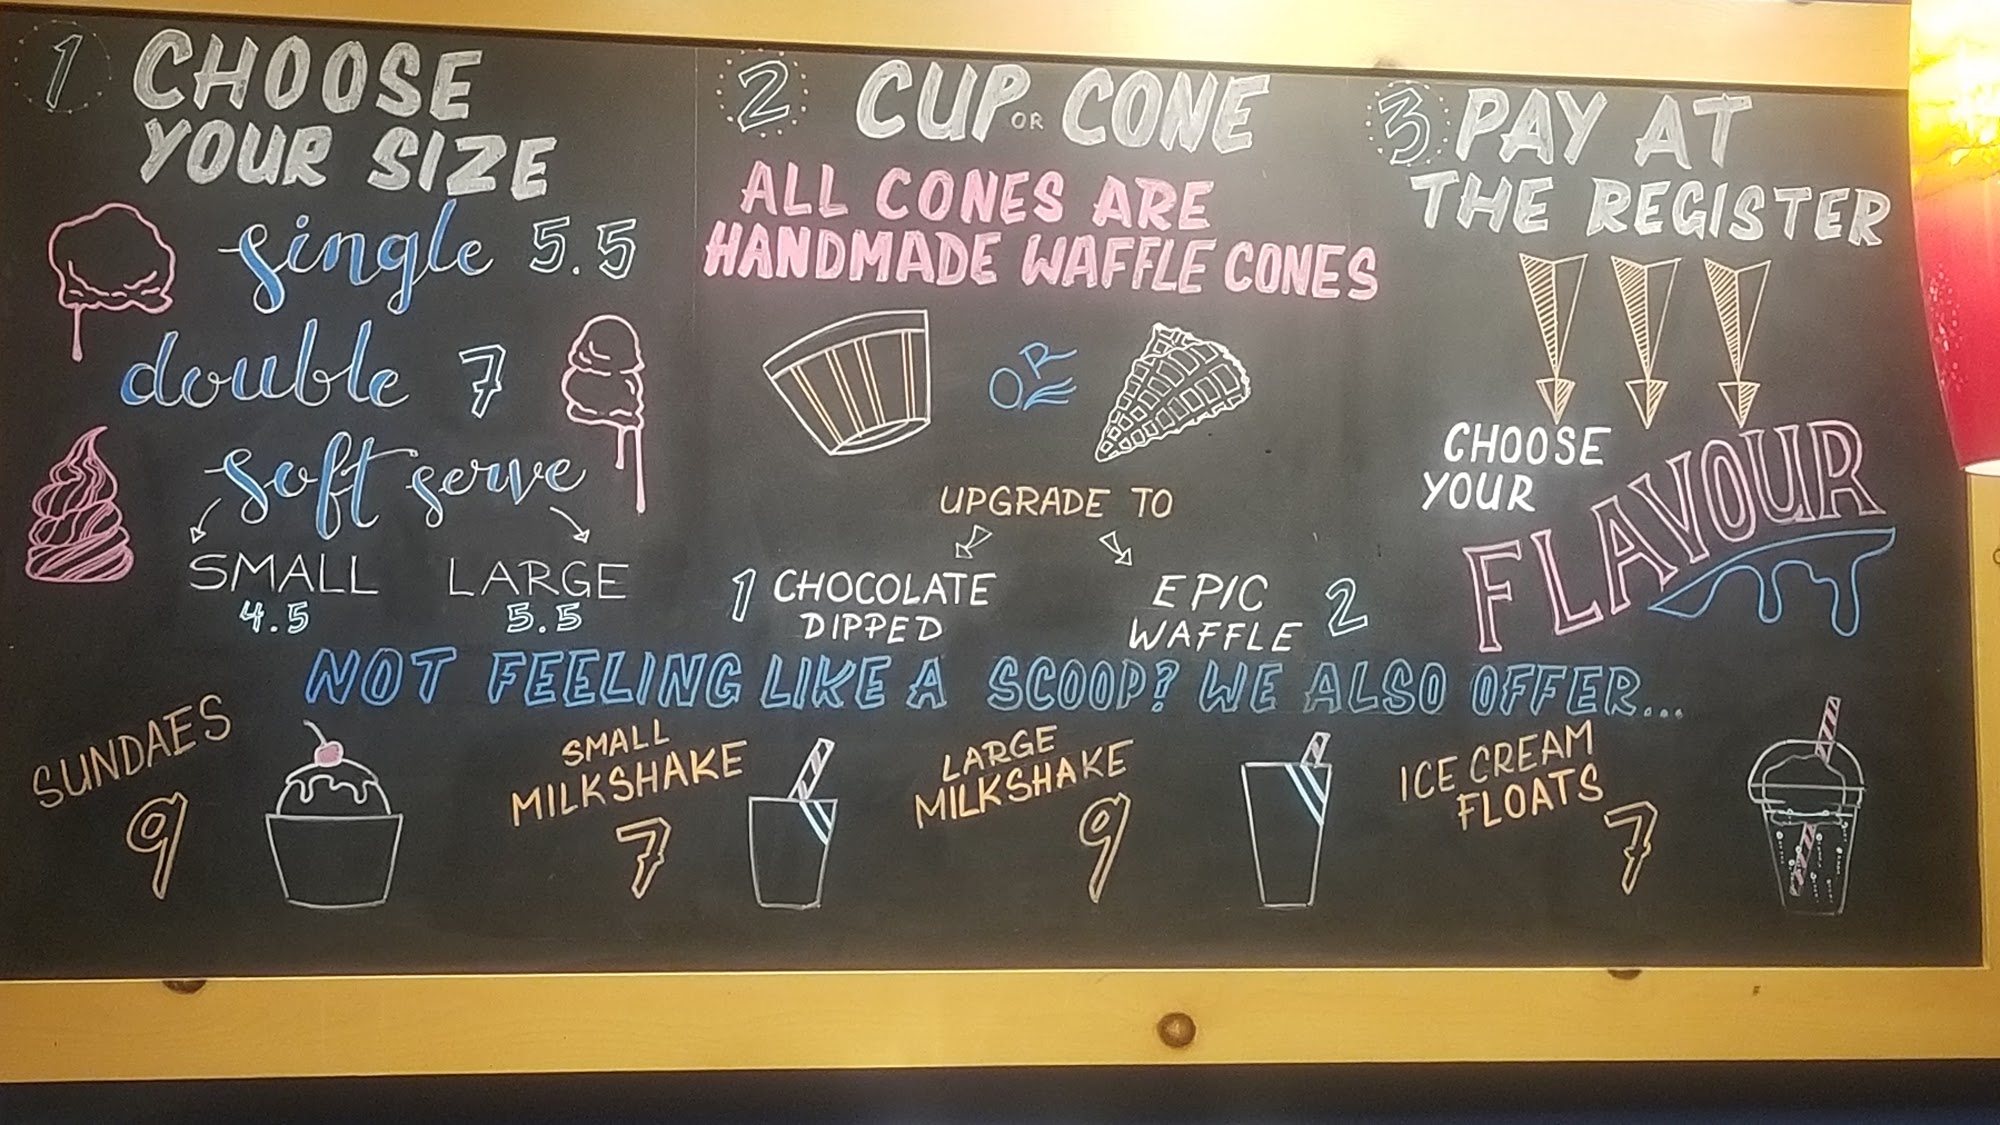 1 CHOOSE
YOUR SIZE
single 5.5
double 7
soft serve
SMALL LARGE
4.5 5.5
2 CUP OR CONE
ALL CONES ARE
HANDMADE WAFFLE CONES
OR
UPGRADE TO
1 CHOCOLATE
DIPPED
EPIC 2
WAFFLE
3 PAY AT
THE REGISTER
CHOOSE
YOUR
FLAVOUR
NOT FEELING LIKE A SCOOP? WE ALSO OFFER...
SUNDAES
9
SMALL
MILKSHAKE
7
LARGE
MILKSHAKE
9
ICE CREAM
FLOATS
7